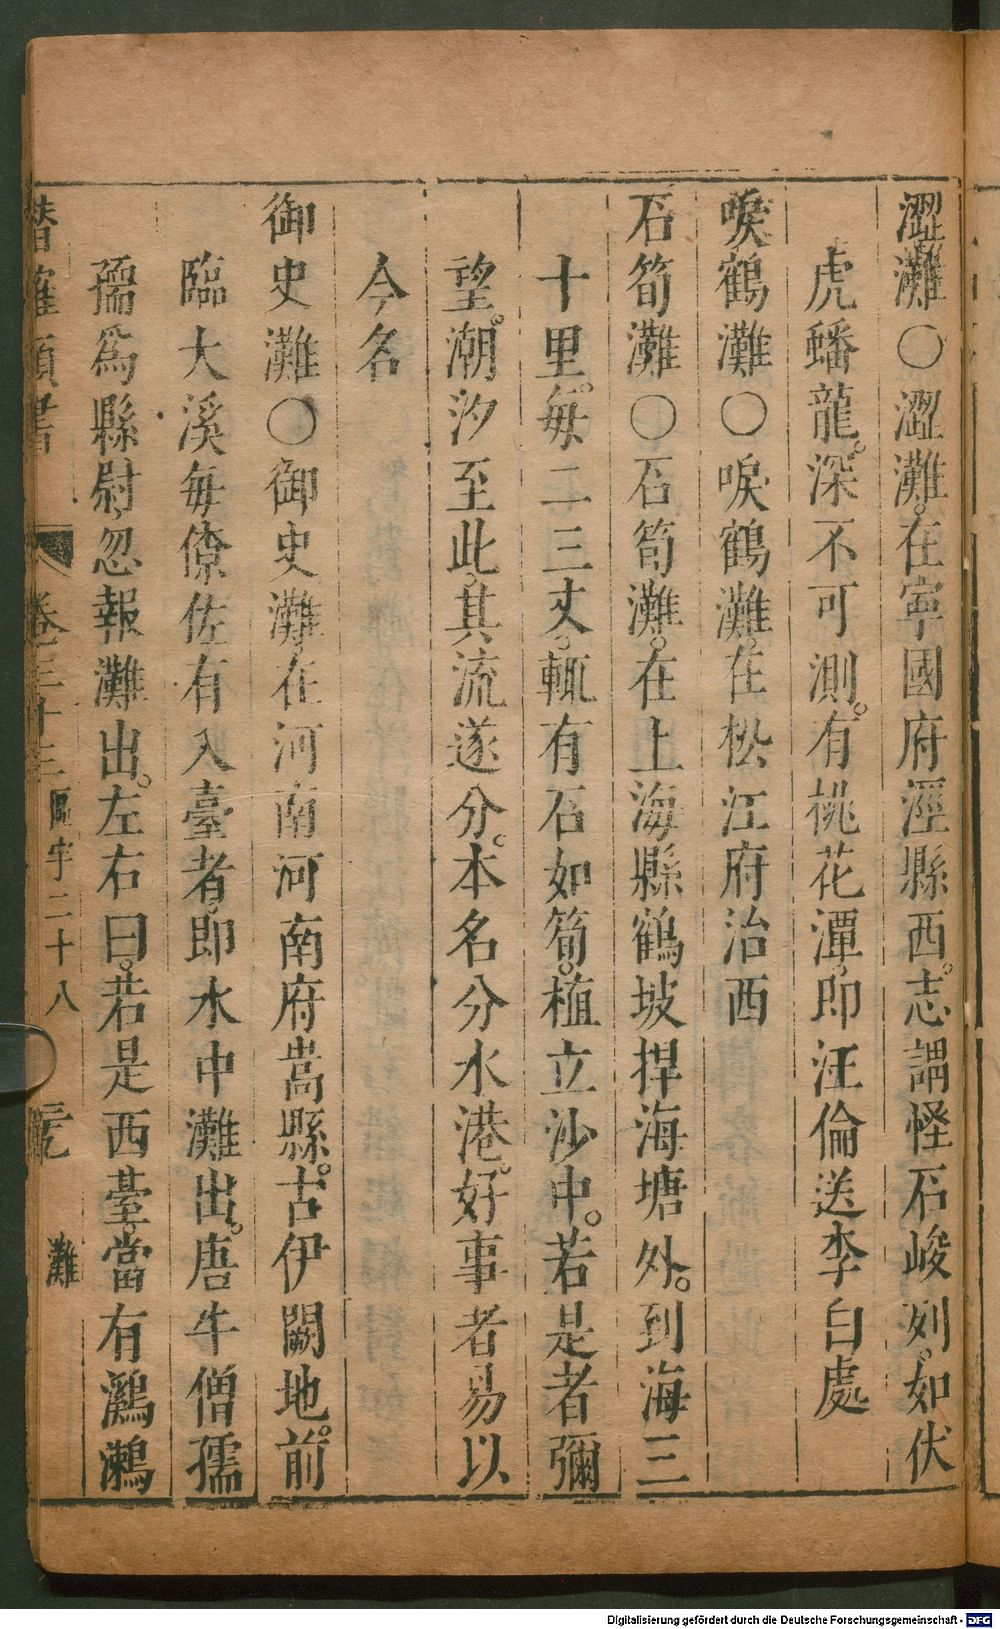 澀灘○澀灘。在寧國府涇縣西。志謂怪石峻列。如伏
虎蟠龍。深不可測。有桃花潭。即汪倫送李白處
唳鶴灘○唳鶴灘。在松江府治西
石筍灘○石筍灘。在上海縣鶴坡捍海塘外。到海三
十里。每二三丈。輒有石如筍。植立沙中。若是者彌
望。潮汐至此。其流遂分。本名分水港。好事者易以
今名
御史灘○御史灘。在河南河南府嵩縣。古伊闕地。前
臨大溪每僚佐有入臺者。即水中灘出。唐牛僧孺
孺爲縣尉。忽報灘出。左右曰。若是西臺。當有鸂鶒
潛確類書 卷三十三 區宇二十八 灘
Digitalisierung gefördert durch die Deutsche Forschungsgemeinschaft - DFG